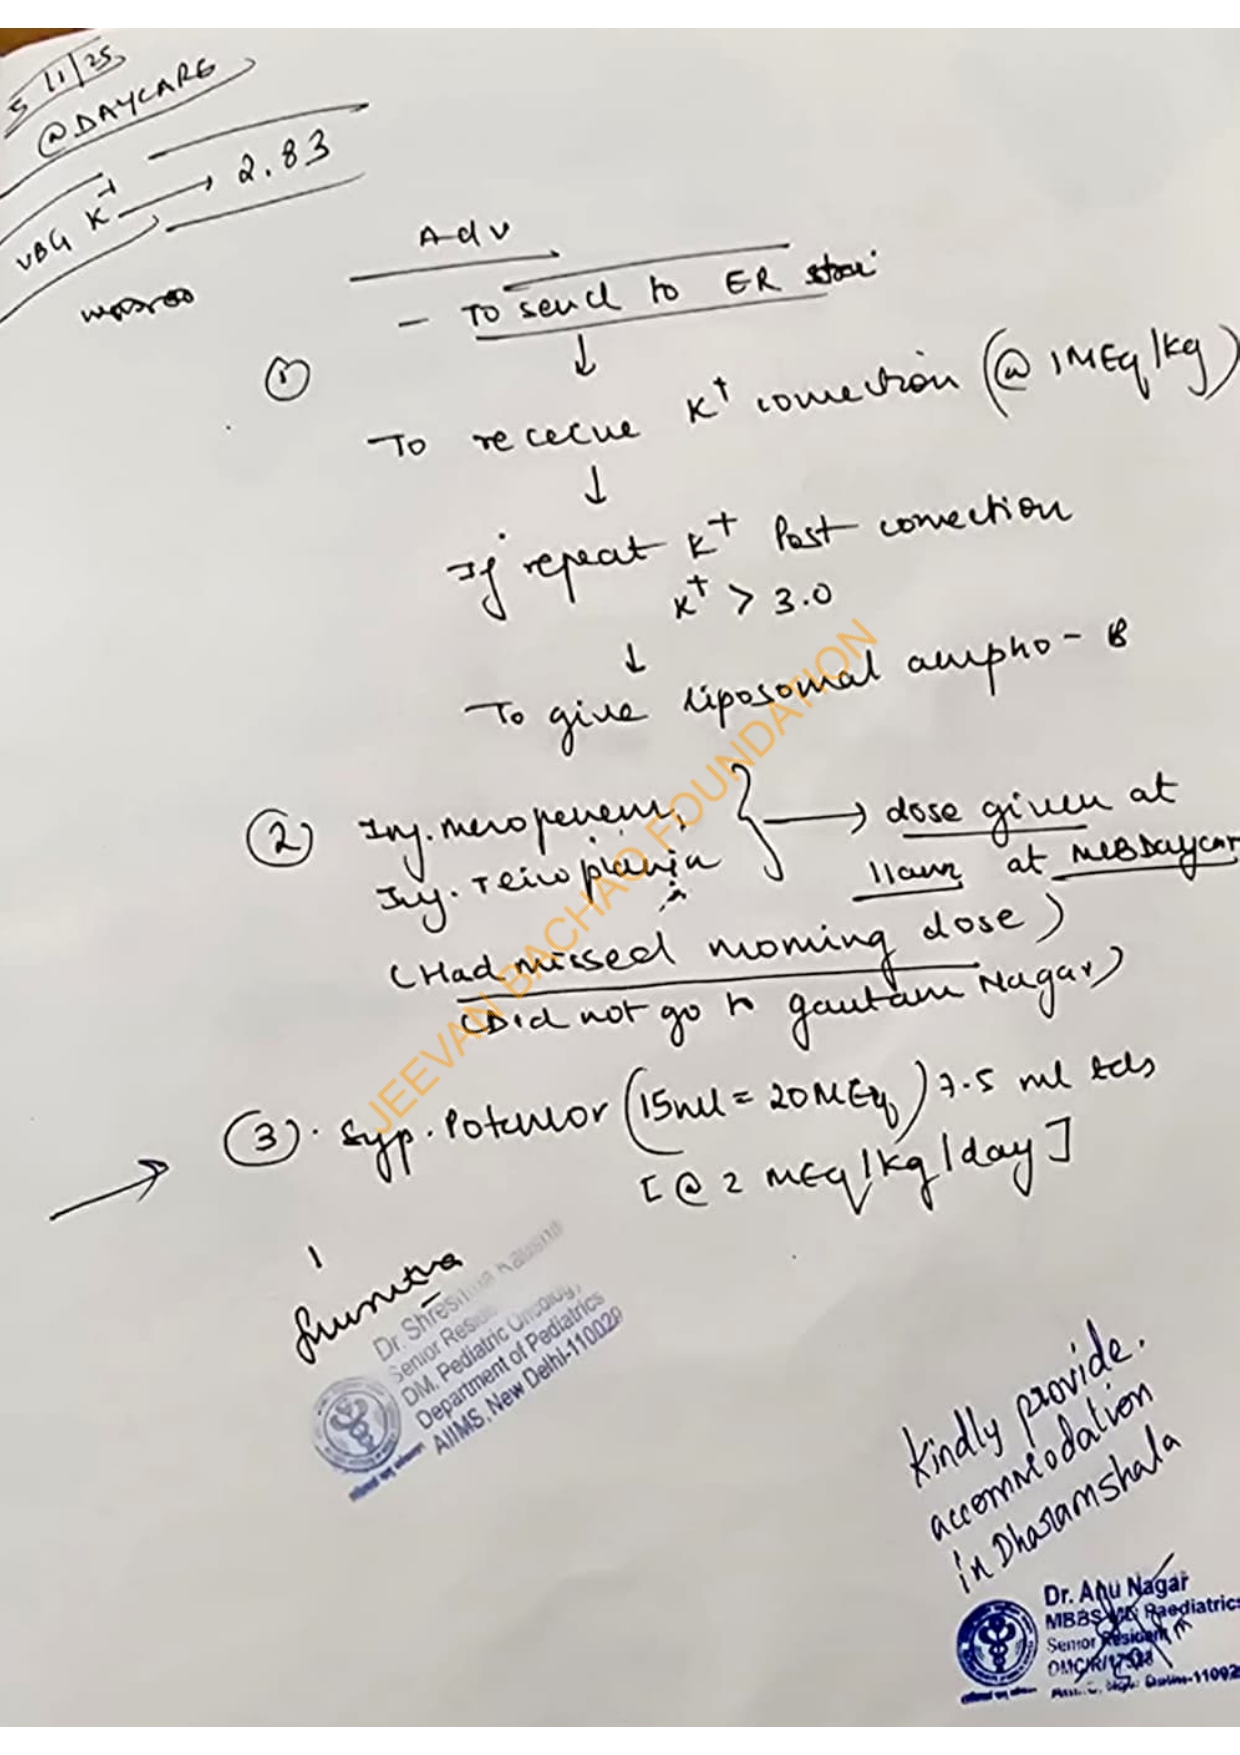 5/11/25
@DAYCARE
VBG K+ → 2.83
Adv
- To send to ER
↓
① To receive K+ correction (@ 1MEq/kg)
↓
If repeat K+ Post correction
K+ > 3.0
↓
To give liposomal ampho-B
② Inj. meropenem, } → dose given at
Inj. Teicoplanin 11am at MCB Daycare
(Had missed morning dose)
(Did not go to gautam Nagar)
→ ③. Syp. Potchlor (15ml = 20MEq) 7.5 ml tds
[@ 2 MEq/kg/day]
Dr. Shreshtha
Senior Resident
DM, Pediatric Oncology,
Department of Pediatrics
AIIMS, New Delhi-110029
Kindly provide.
accommodation
in Dharamshala
Dr. Anu Nagar
MBBS MD Paediatrics
Senior Resident
DMC/R/
New Delhi-11002
JEEVAN BACHAO FOUNDATION